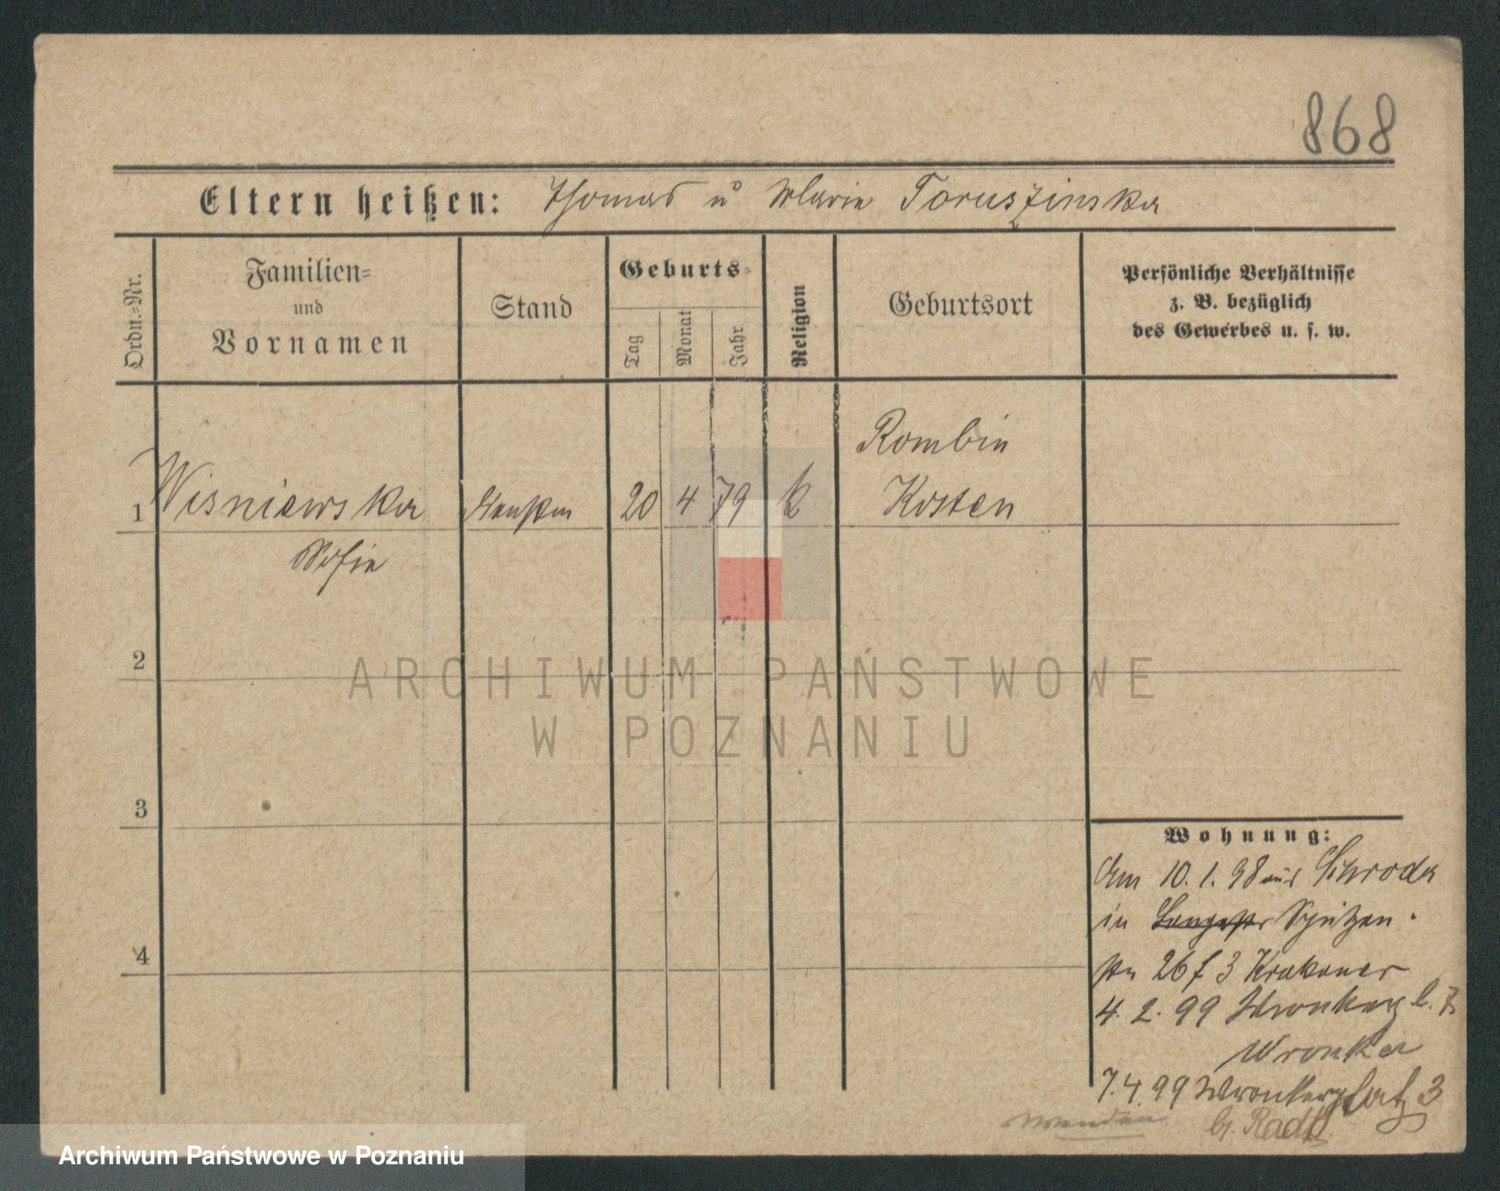 868
Eltern heißen: Thomas u Marie Toruszinska
Ordn.=Nr.
Familien=
und
Vornamen
Stand
Geburts=
Tag
Monat
Jahr
Religion
Geburtsort
Persönliche Verhältnisse
z. B. bezüglich
des Gewerbes u. s. w.
Rombin
1 Wisniewska 20 4 79 k Kosten
Sofie
2
3
4
Wohnung:
Am 10. 1. 98 aus Schroda
in Langestr Schützen
str 26 f 3 Krakauer
4. 2. 99 b.
Wronka
7. 4. 99 Wronkerplatz 3
b. Radt
wenden
ARCHIWUM PAŃSTWOWE
W POZNANIU
Archiwum Państwowe w Poznaniu